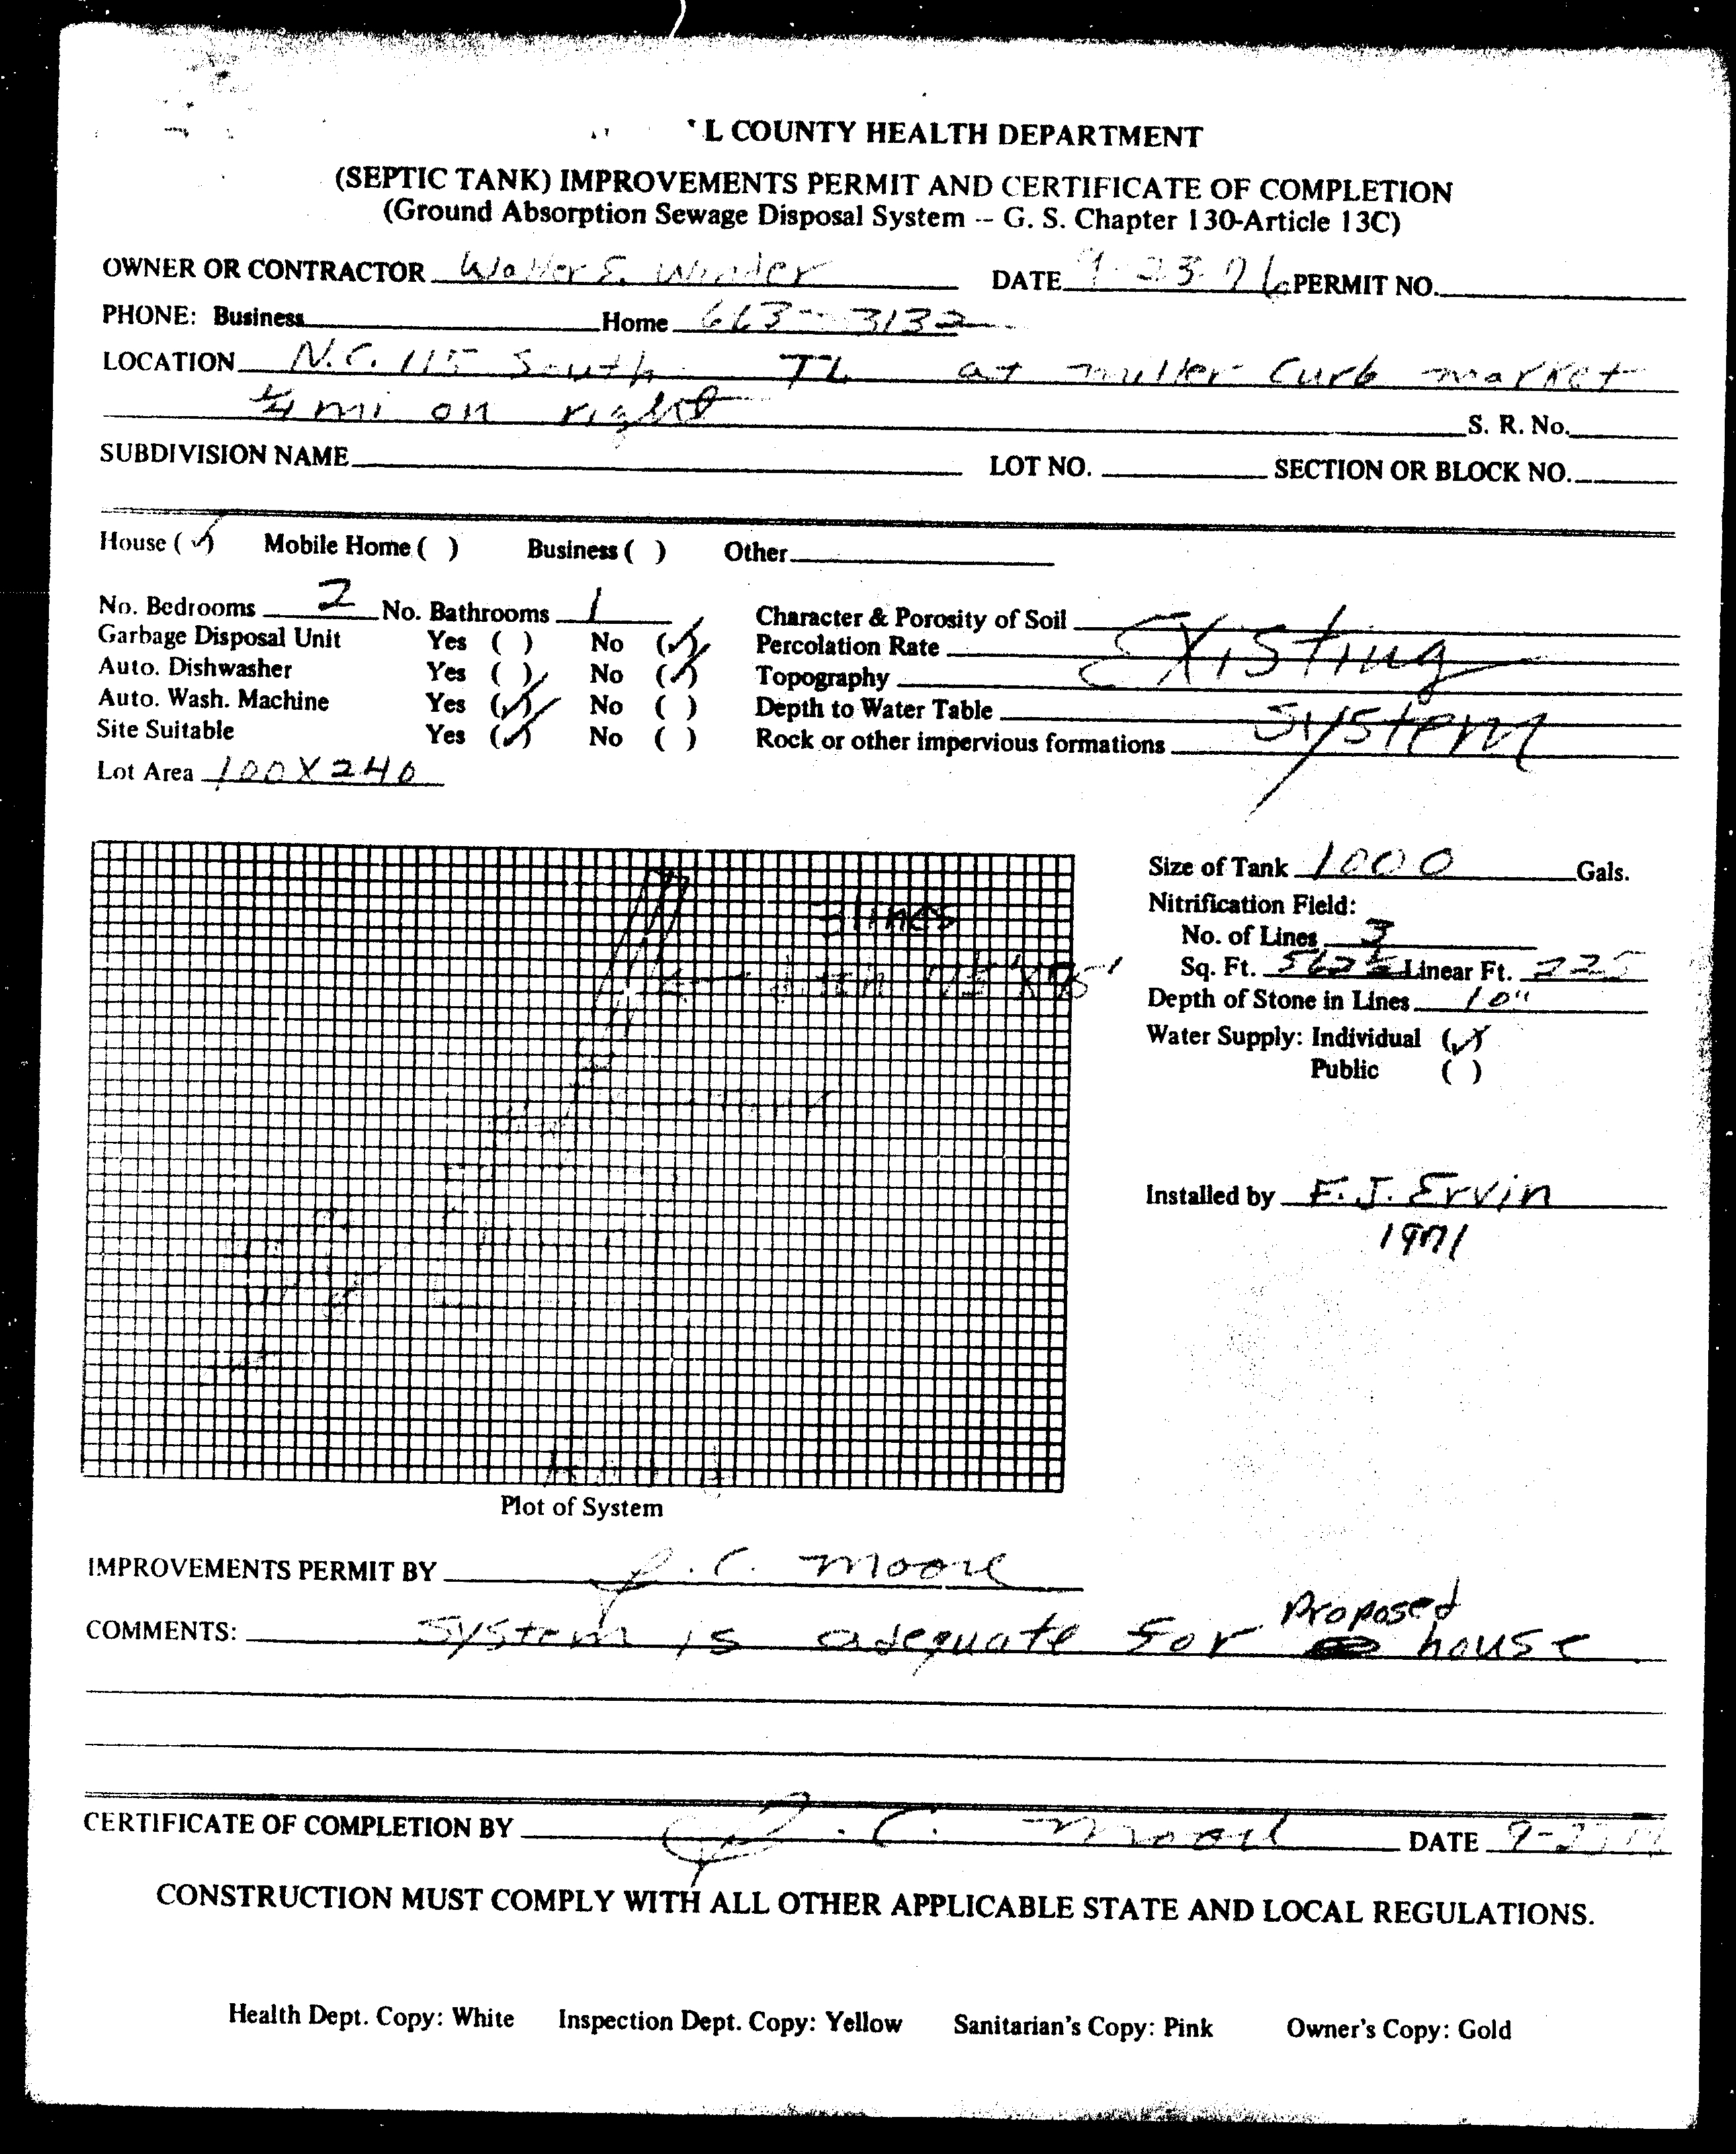 L COUNTY HEALTH DEPARTMENT
(SEPTIC TANK) IMPROVEMENTS PERMIT AND CERTIFICATE OF COMPLETION
(Ground Absorption Sewage Disposal System -- G. S. Chapter 130-Article 13C)
OWNER OR CONTRACTOR Walter E. DATE 9-23-76 PERMIT NO.
PHONE: Business Home 663-3132
LOCATION N.C. 115 South TL at miller Curb market
1/4 mi on right S. R. No.
SUBDIVISION NAME LOT NO. SECTION OR BLOCK NO.
House (✓) Mobile Home ( ) Business ( ) Other
No. Bedrooms 2 No. Bathrooms 1 Character & Porosity of Soil
Garbage Disposal Unit Yes ( ) No (✓) Percolation Rate Existing
Auto. Dishwasher Yes ( ) No (✓) Topography
Auto. Wash. Machine Yes (✓) No ( ) Depth to Water Table System
Site Suitable Yes (✓) No ( ) Rock or other impervious formations
Lot Area 100 X 240
Size of Tank 1000 Gals.
Nitrification Field:
3 lines
No. of Lines 3
Sq. Ft. Linear Ft. 225
Depth of Stone in Lines 10"
Water Supply: Individual (✓)
Public ( )
Installed by F. J. Ervin
1971
Plot of System
IMPROVEMENTS PERMIT BY J. C. Moore
COMMENTS: System is adequate for Proposed house
CERTIFICATE OF COMPLETION BY J. C. Moore DATE
CONSTRUCTION MUST COMPLY WITH ALL OTHER APPLICABLE STATE AND LOCAL REGULATIONS.
Health Dept. Copy: White Inspection Dept. Copy: Yellow Sanitarian's Copy: Pink Owner's Copy: Gold